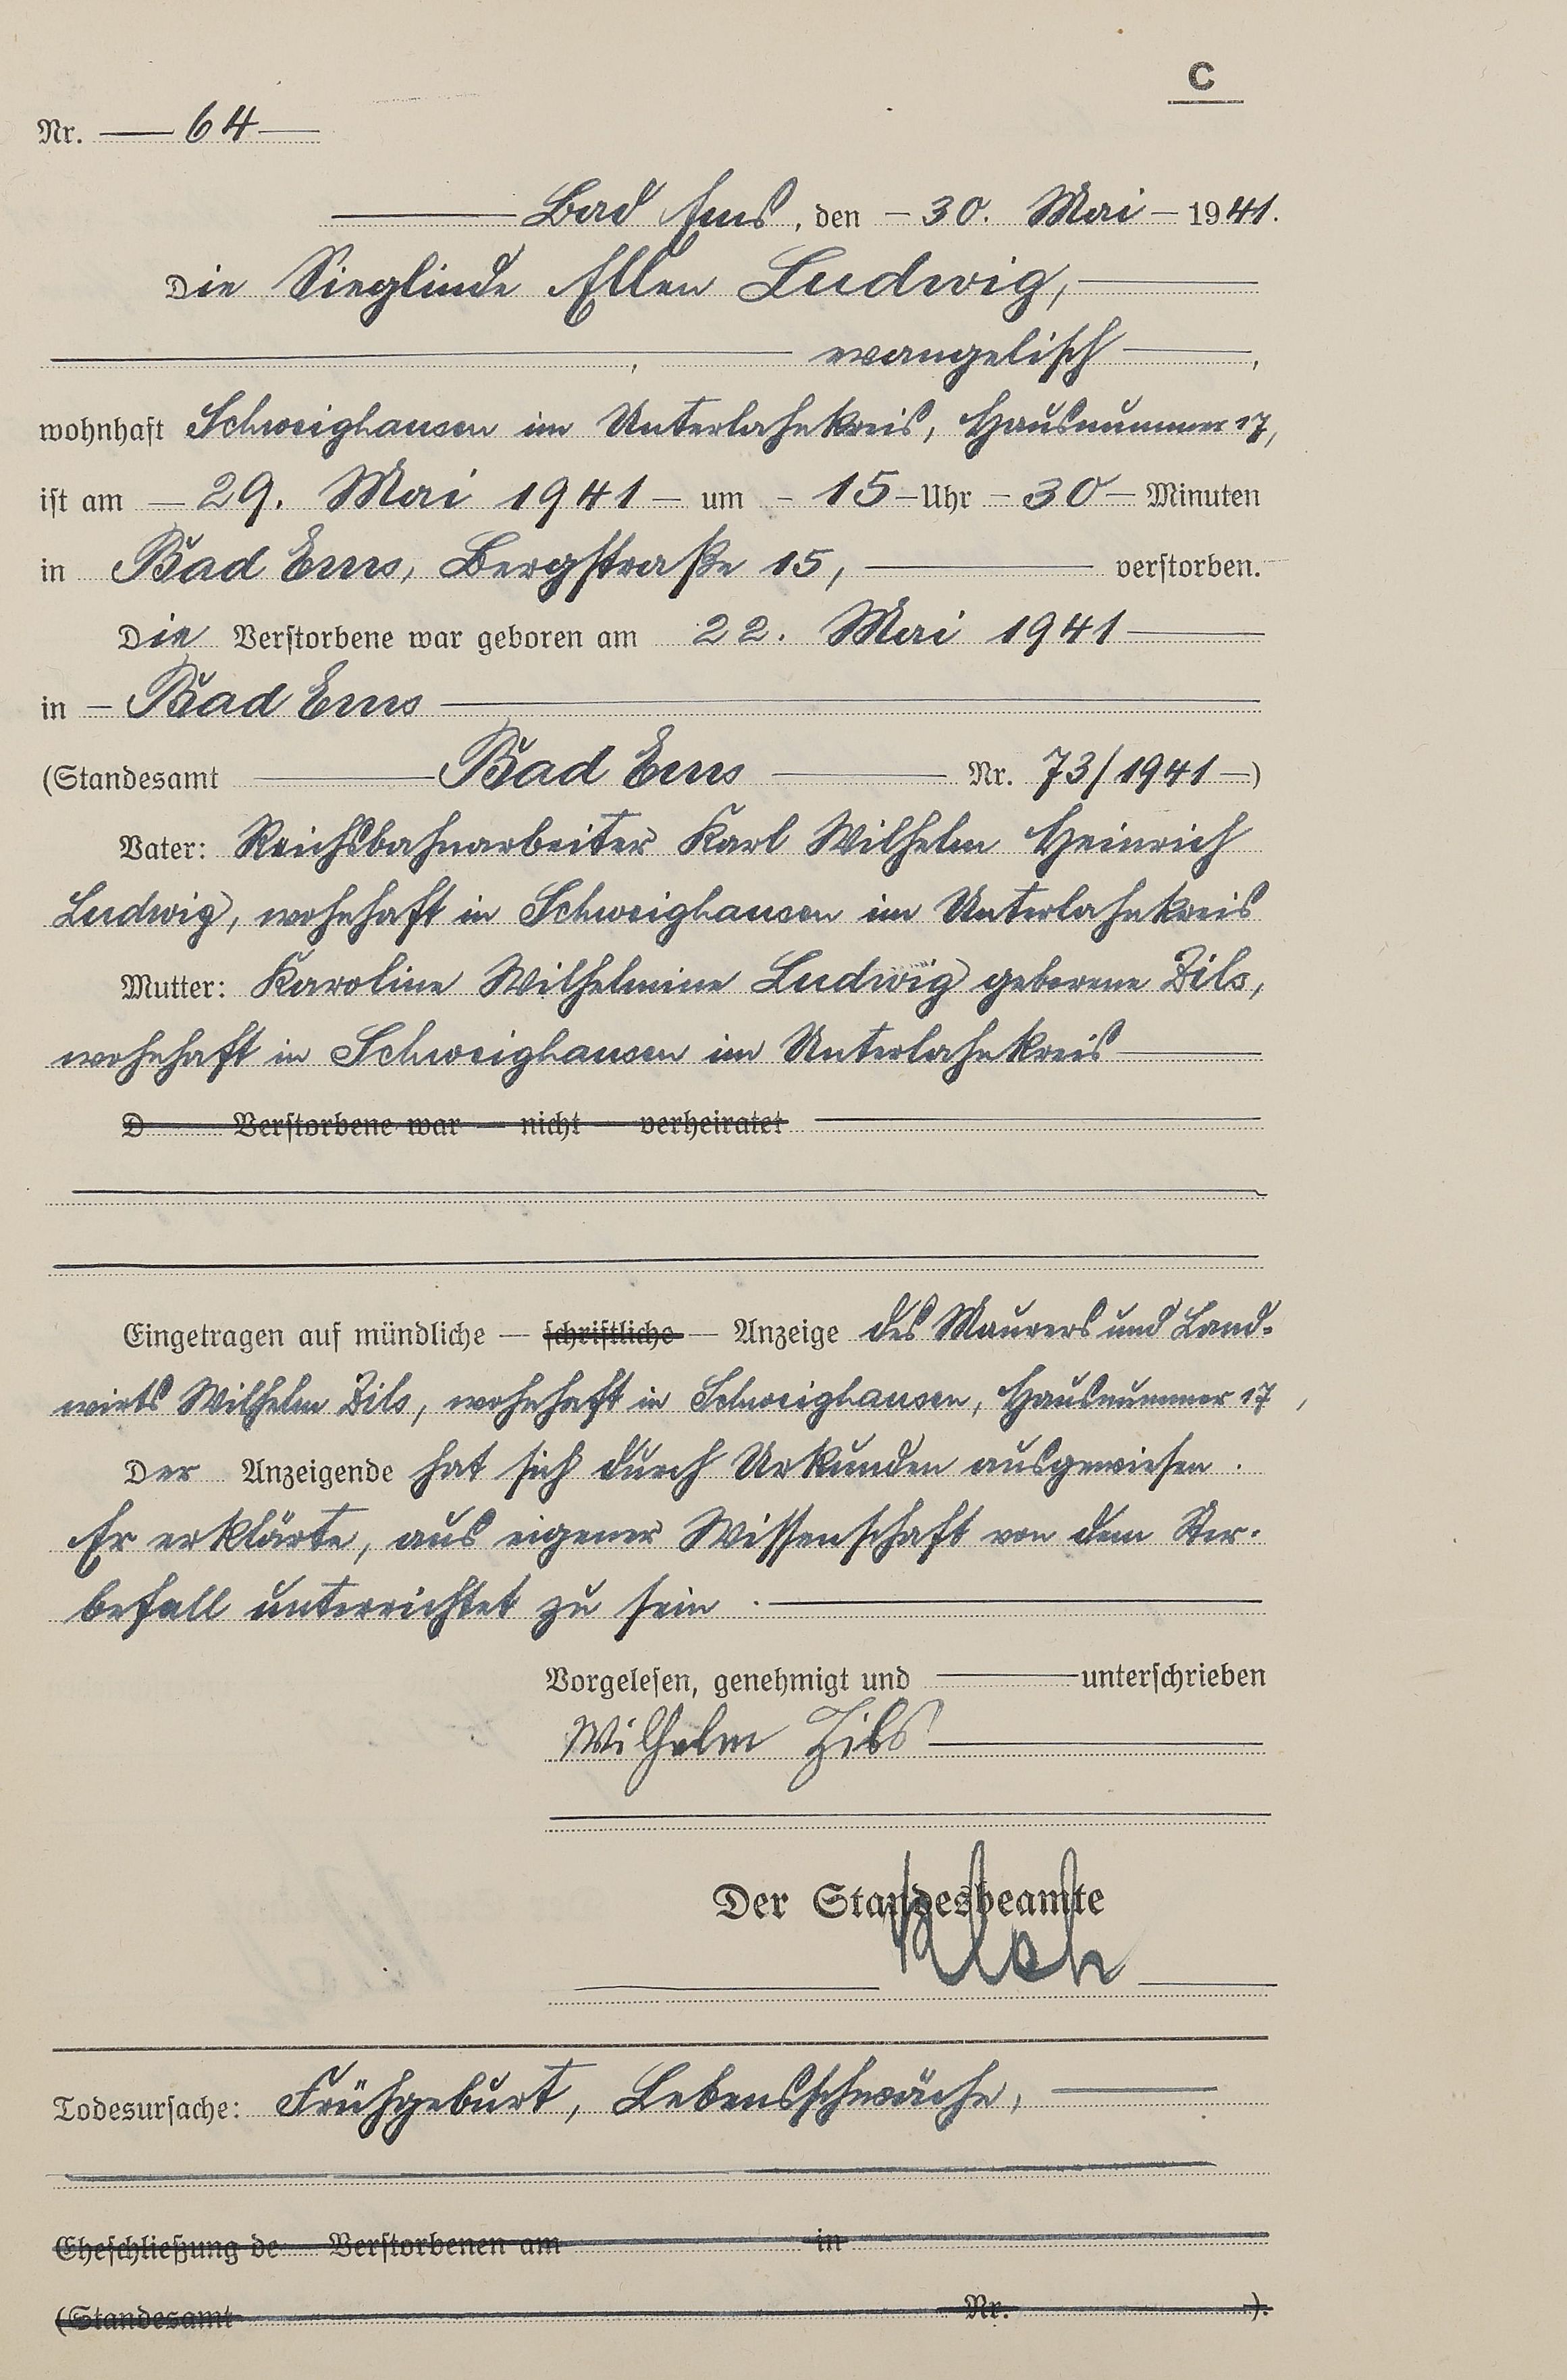 C
Nr. 64
Bad Ems, den 30. Mai 1941.
Die Sieglinde Ellen Ludwig,
, evangelisch,
wohnhaft Schweighausen im Unterlahnkreis, Hausnummer 17,
ist am 29. Mai 1941 um 15 Uhr 30 Minuten
in Bad Ems, Bergstraße 15, verstorben.
Die Verstorbene war geboren am 22. Mai 1941
in Bad Ems
(Standesamt Bad Ems Nr. 73/1941)
Vater: Reichsbahnarbeiter Karl Wilhelm Heinrich
Ludwig, wohnhaft in Schweighausen im Unterlahnkreis
Mutter: Karoline Wilhelmine Ludwig geborene Zils,
wohnhaft in Schweighausen im Unterlahnkreis
D Verstorbene war — nicht — verheiratet
Eingetragen auf mündliche — schriftliche — Anzeige des Maurers und Land-
wirts Wilhelm Zils, wohnhaft in Schweighausen, Hausnummer 17,
Der Anzeigende hat sich durch Urkunden ausgewiesen.
Er erklärte, aus eigener Wissenschaft von dem Ster-
befall unterrichtet zu sein.
Vorgelesen, genehmigt und unterschrieben
Wilhelm Zils
Der Standesbeamte
Todesursache: Frühgeburt, Lebensschwäche,
Eheschließung de Verstorbenen am in
(Standesamt Nr. ).